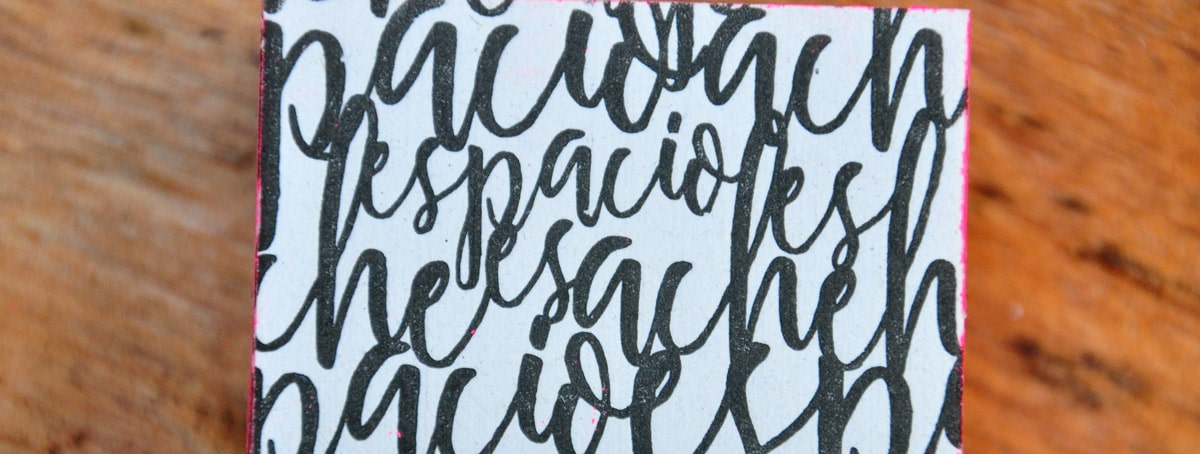 pacio ach
espacio es
che esache h
pacio esp